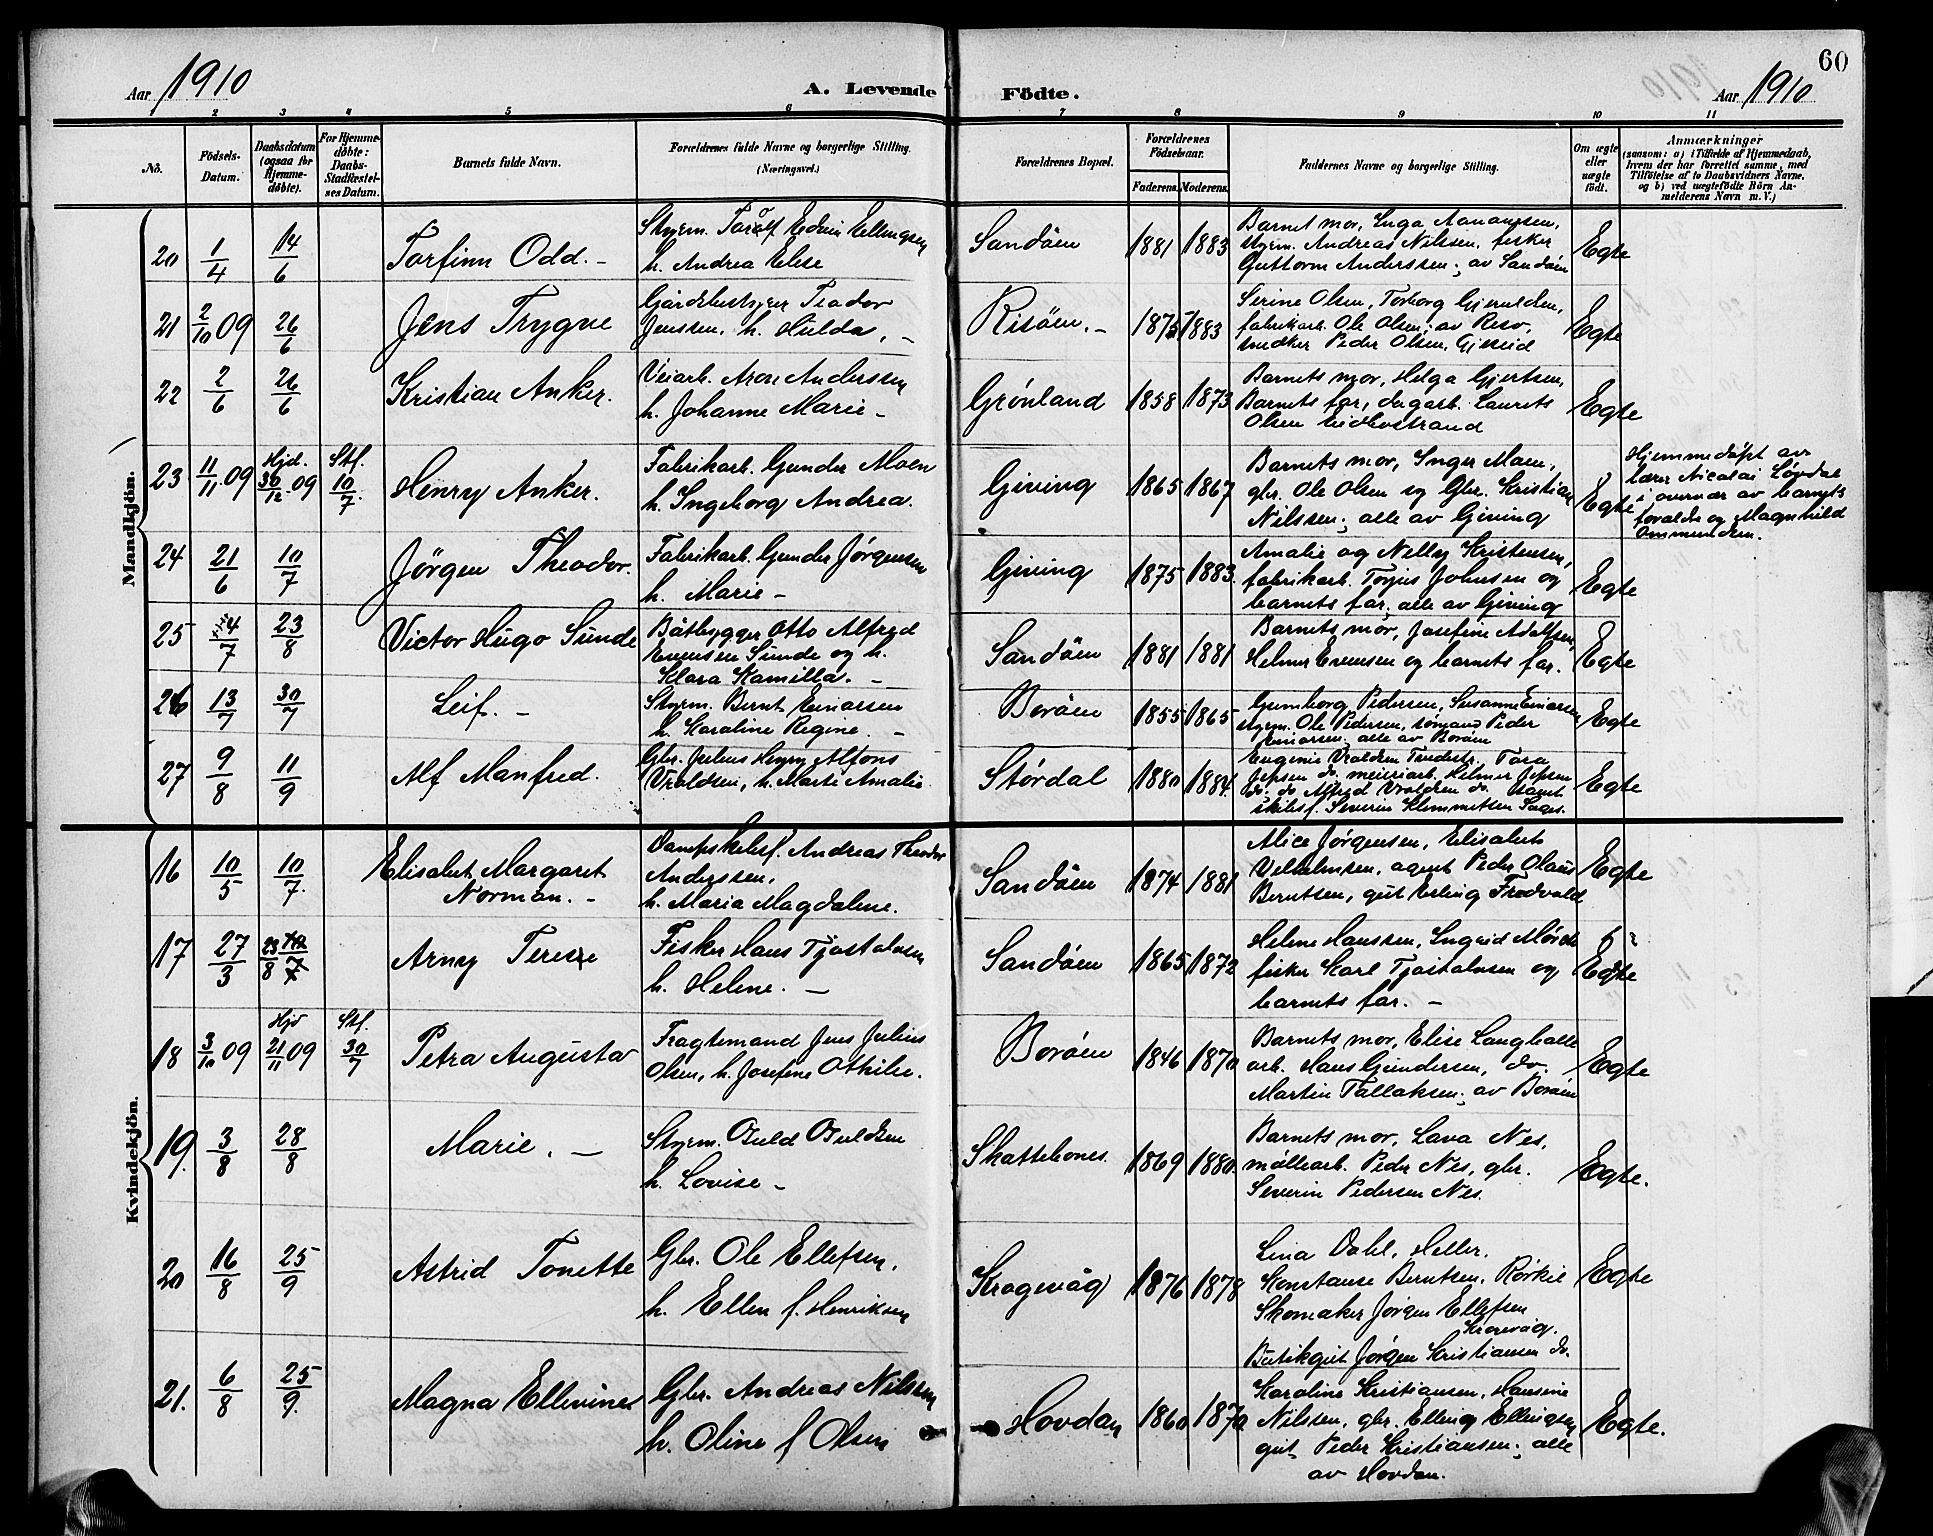 60
Aar 1910
A. Levende Födte.
Aar 1910
1 2 3 4 5 6 7 8 9 10 11
No.
Födsels-Datum.
Daabsdatum (ogsaa for Hjemmedöbte).
For Hjemmedöbte: Daabs-Stadfæstelses Datum.
Barnets fulde Navn.
Forældrenes fulde Navne og borgerlige Stilling.
(Næringsvei.)
Forældrenes Bopæl.
Forældrenes Födselsaar.
Faderens. Moderens.
Faddernes Navne og borgerlige Stilling.
Om ægte eller uægte födt.
Anmærkninger
(saasom: a) i Tilfælde af Hjemmedaab,
hvem der har forrettet samme, med
Tilföielse af to Daabsvidners Navne,
og b) ved uægtefödte Börn Anmelderens Navn m. V.)
Mandkjön.
20 1/4 14/6 Torfinn Odd. - Styrm. Toralf Edvin Ellingsen
h. Andrea Elise
Sandöen 1881 1883 Barnet mor, Inga Aanansen,
styrm. Andreas Nilssen, fisker
Guttorm Anderssen; av Sandöen
Egte
21 2/10 09 26/6 Jens Trygve Gårdbestyrer Teodor
Jenssen, h. Hulda, -
Risöen. - 1875 1883 Serine Olsen, Torborg
fabrikarb. Ole Olsen; av
snedker Peder Olsen,
Egte
22 2/6 26/6 Kristian Anker. Veiarb. Aron Anderssen
h. Johanne Marie -
Grönland 1858 1873 Barnets mor, Helga Gjertsen,
Barnets far, dagarb. Laurits
Olsen
Egte
23 11/11 09 Hjd. 30/12 09 Stf. 10/7. Henry Anker. Fabrikarb. Gunder Moen
h. Ingeborg Andrea.
Gjeving 1865 1867 Barnets mor, Inger Moen,
gbr. Ole Olsen og Gbr. Kristian
Nilssen; alle av Gjeving
Egte
Hjemmedöpt av
lærer Nicolai Lövdal
i overvær av barnets
foreldre og Magnhild
Ommundsen.
24 21/6 10/7 Jörgen Theodor. Fabrikarb. Gunder Jörgensen
h. Marie -
Gjeving 1875 1883. Amalie og Nelly Kristensen,
fabrikarb. Torjus Johnsen og
barnets far; alle av Gjeving
Egte
25 4/7 23/8 Victor Hugo Sunde Båtbygger Otto Alfred
Evensen Sunde og h.
Klara Kamilla. -
Sandöen 1881 1881 Barnets mor, Josefine Adolfsen,
Helmer Evensen og barnets far.
Egte
26 13/7 30/7 Leif. - Styrm. Bernt Einarsen
h. Karoline Regine. -
Boröen 1855 1865 Gunborg Pedersen, Susanne Einarsen
styrm. Ole Pedersen, sömand Peder
Einarsen; alle av Boröen
Egte
27 9/8 11/9 Alf Manfred. Gbr. Julius Henry Alfons
Vraldsen, h. Marte Amalie
Stördal 1880 1884. Eugenie Vraldsen Tvedestr, Tora
Jepsen do. meieriarb. Helmer Jepsen
do. do Alfred Vraldsen do. samt
skibsf. Severin Klemmetsen
Egte
Kvindekjön.
16 10/5 10/7. Elisabet Margaret
Norman. -
Dampskibsf. Andreas Theodor
Anderssen,
h. Maria Magdalene.
Sandöen 1874 1881 Alice Jörgensen, Elisabet
Vilhelmsen, agent Peder Olaus
Berntsen, gut Erling Fredvald
Egte
17 27/3 23/8 10/7 Arny Terese Fisker Hans Tjostolvsen
h. Helene. -
Sandöen 1865 1872 Helene Hanssen, Ingrid
fisker Karl Tjostolvsen og
barnets far. -
Egte
18 3/10 09 Hjd 21/11 09 Stf. 30/7 Petra Augusta Fragtemand Jens Julius
Olsen, h. Josefine Othilie.
Boröen 1846 1870 Barnets mor, Elise Langballe
arb. Hans Gundersen, do.
Martin Tallaksen; av Boröen
Egte
19. 3/8 28/8 Marie. - Styrm. Osuld Osuldsen
h. Lovise -
Skattebones. 1869 1880. Barnets mor, Lava Nes,
möllearb. Peder Nes, gbr.
Severin Pedersen Nes.
Egte.
20 16/8 25/9 Astrid Tonette Gbr. Ole Ellefsen,
h. Ellen f. Henriksen
Krogevåg 1876 1878 Lina Dahl, Heller.
Konstanse Berntsen, Rörkil
Skomaker Jörgen Ellefsen
Krogevåg.
Butikgut Jörgen Kristiansen do.
Egte
21. 6/8 25/9. Magna Ellevine Gbr. Andreas Nilsen
h. Oline f Olsen
Hovdan 1860 1870. Karoline Kristiansen, Hansine
Nilssen, gbr. Elling Ellingsen
gut Peder Kristiansen; alle
av Hovdan.
Egte.